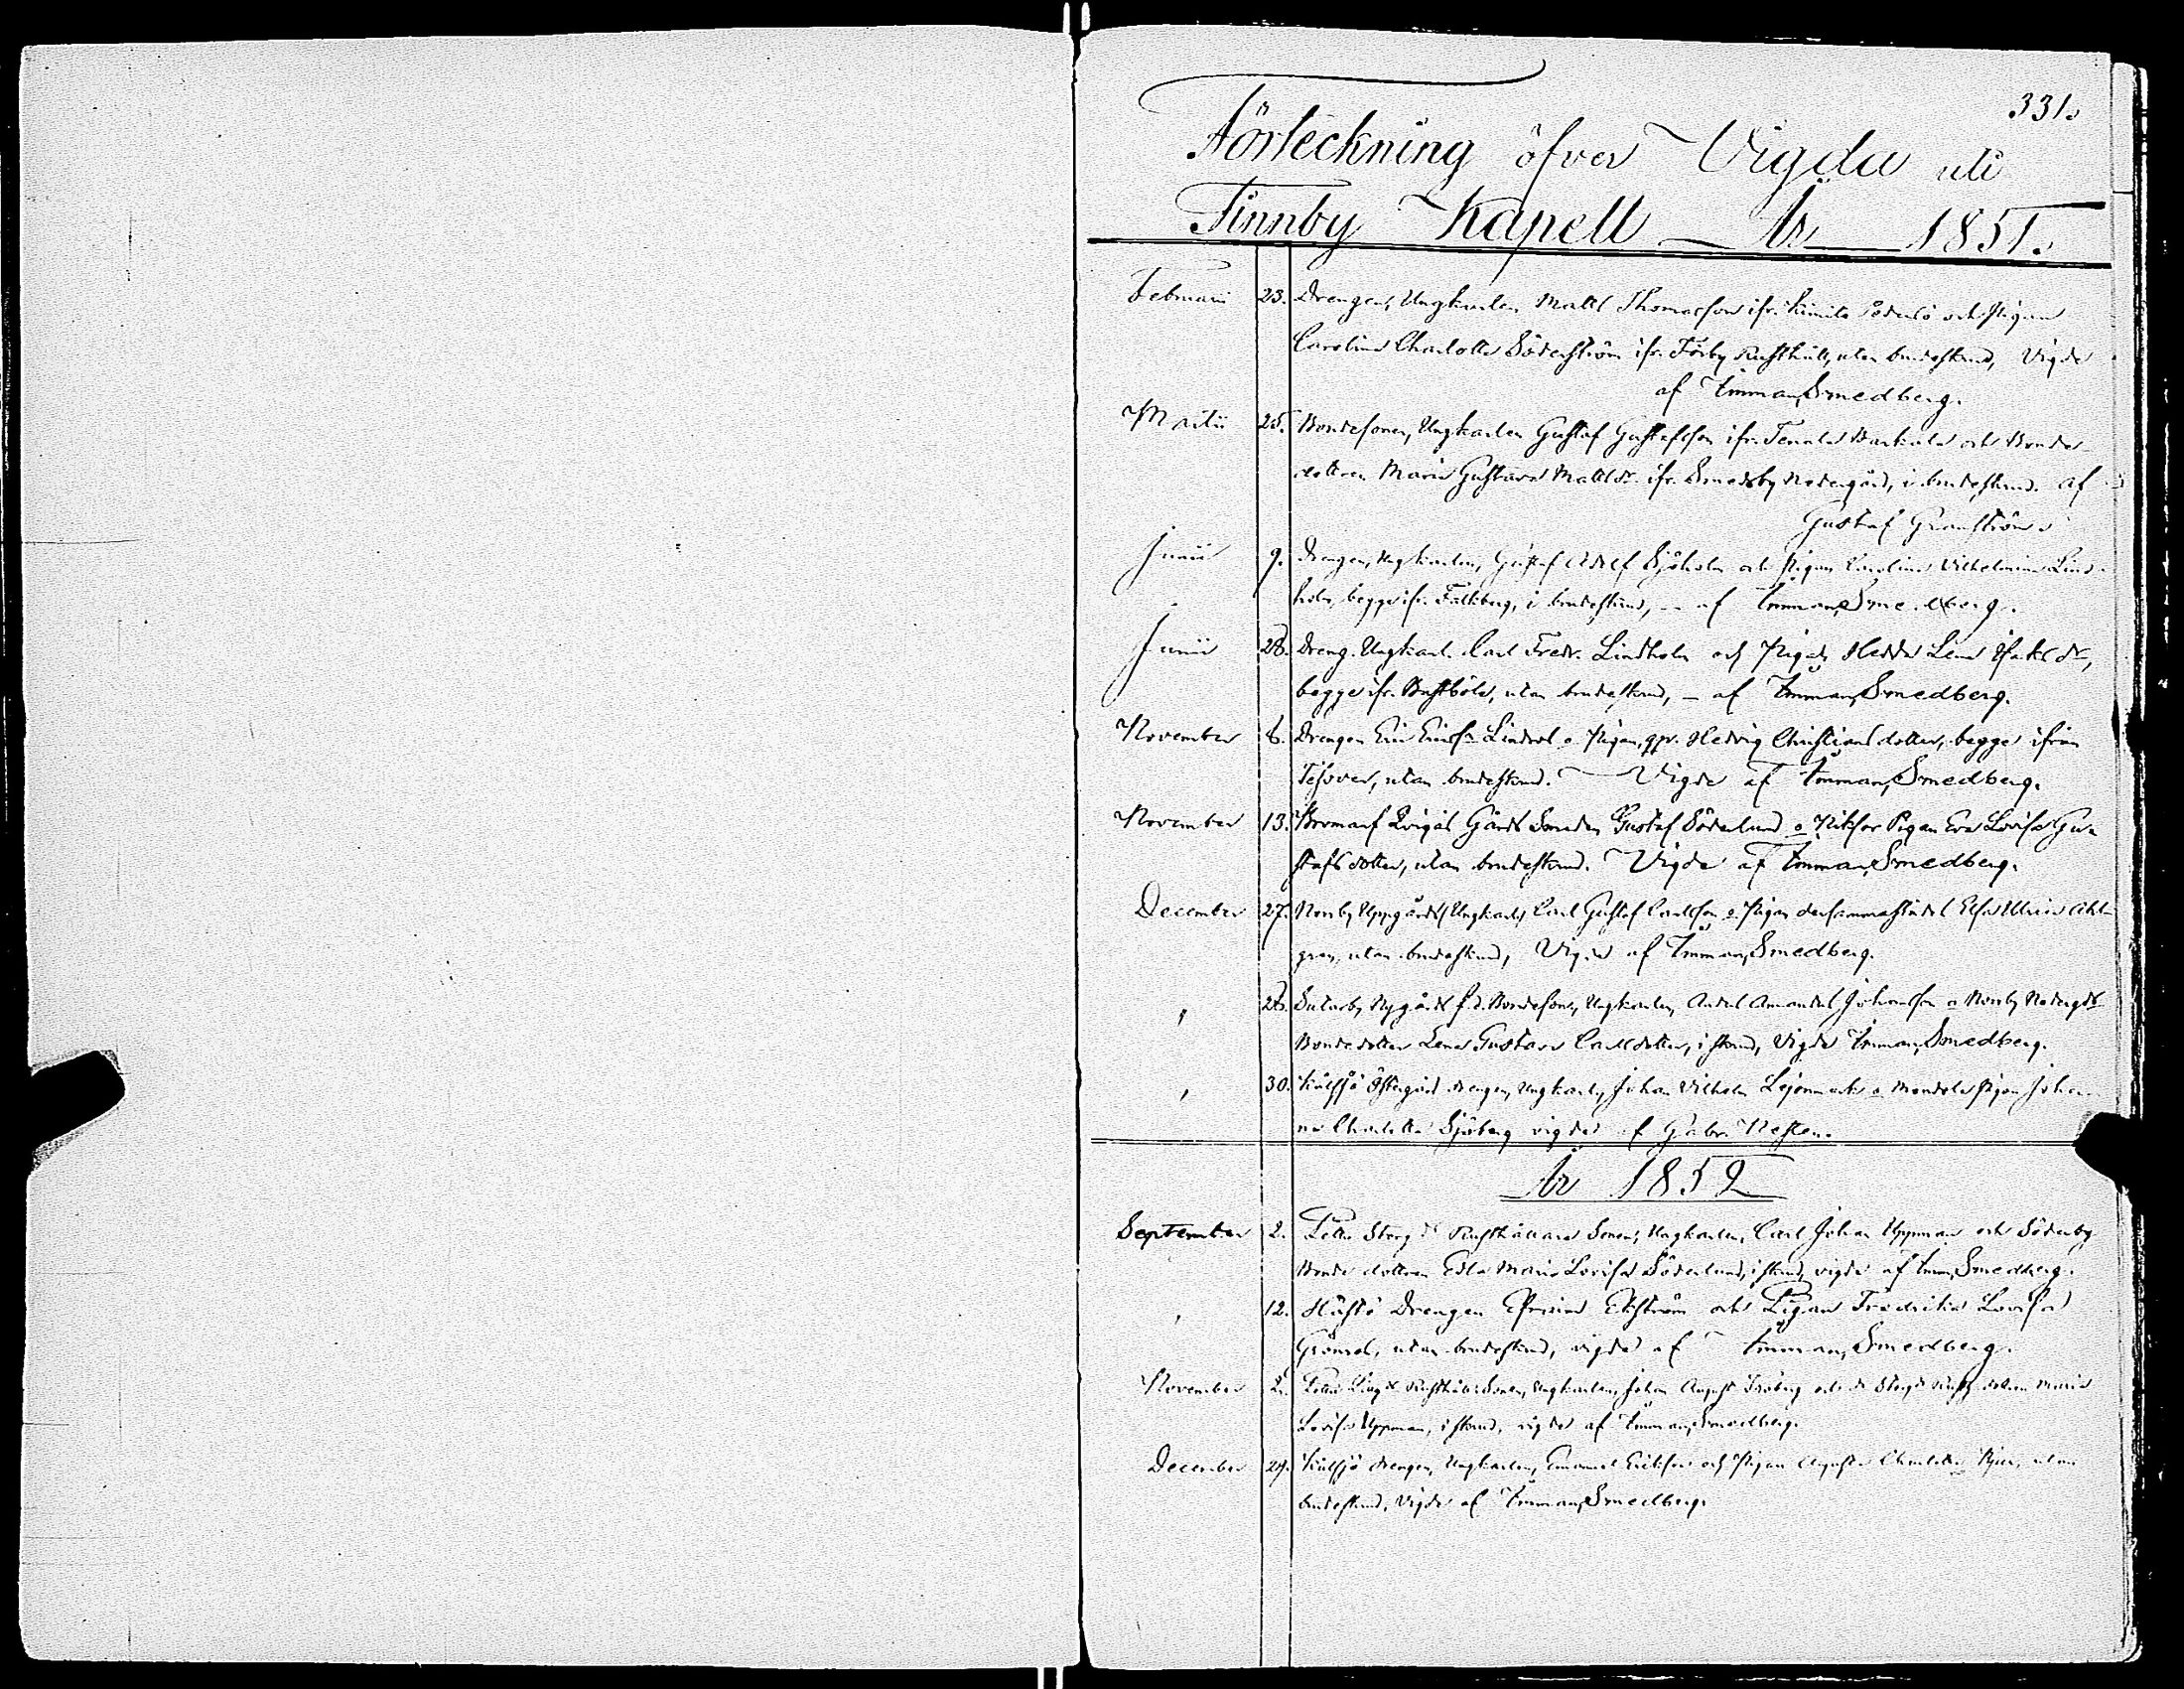 331.
Förteckning öfver Vigda uti
Finnby Kapell — År — 1851.
Februarii 23. Drengen, Ungkarlen Matts Thomasson ifr. Kimito och Pigan
Carolina Charlotta Söderström ifr. Förby Rusthåll, utan brudestånd, Vigde
af Imman. Smedberg.
Martii 25. Bondesonen, Ungkarlen Gustaf Gustafsson ifr. Tenala och Bonde-
dottren Maria Gustava Mattsdr. ifr. Smedsby Nedergård, i brudestånd. af
Gustaf Granström.
Junii 9. Drengen, Ungkarlen, Gustaf Adolf Sjöholm och Pigan Carolina Vilhelmina Lind-
holm, begge ifr. Falkberg, i brudestånd, — af Imman. Smedberg.
Junii 28. Dreng. Ungkarl. Carl Fredr. Lindholm och Pigan Hedda Lena Isaksdr,
begge ifr. utan brudestånd, — af Imman. Smedberg.
November 6. Drengen Eric Ericss. Lindroos o. Pigan, Hedvig Christiansdotter, begge ifrån
utan brudestånd. — Vigde af Imman. Smedberg.
November 13. Bromarf Gårds Smeden Gustaf Söderlund o Pigan Eva Lovisa Gu-
stafsdotter, utan brudestånd. Vigde af Imman. Smedberg.
December 27. Norrby Uppgårds Ungkarls Carl Gustaf Carlsson o. Pigan dersammastädes Ulrica Ahl-
gren, utan brudestånd, Vigde af Imman. Smedberg.
" 28. Nygårds f.d. Bondesonen, Ungkarlen, Johansson o Norrby Nedergds
Bondedotter Lena Gustava Carlsdotter, i stånd, Vigde Imman. Smedberg.
" 30. Östergård drengen, Ungkarlen, Johan Vilhelm Lejonmark o Pigan Johan-
na Charlotta Sjöberg vigde af Gabr.
År 1852
September 2. Rusthållare Sonen, Ungkarlen, Carl Johan Uppman och Söderby
Bonde dottren Edla Maria Lovisa Söderlund, i stånd, vigde af Imm. Smedberg.
" 12. Drengen Ekström och Pigan Fredrika Lovisa
Grönroos, utan brudestånd, vigde af Imman. Smedberg.
November 2. Sonen, Ungkarlen, Johan August och Maria
Lovisa Uppman, i stånd, vigde af Imman. Smedberg.
December 29. drengen, Ungkarlen, Emanuel Eriksson och Pigan Augusta Charlotta utan
brudestånd, Vigde af Imman. Smedberg.